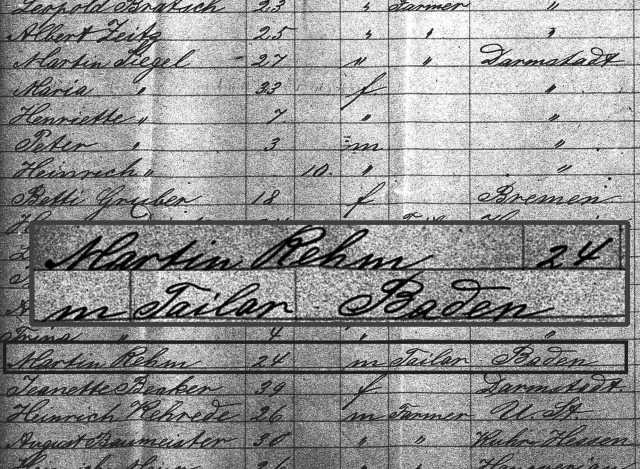 Leopold Bratsch 23 " Farmer "
Albert Zeitz 25 " " "
Martin Siegel 27 " " Darmstadt
Maria " 33 f "
Henriette " 7 " "
Peter " 3 m "
Heinrich " 10 " "
Betti Gruber 18 f Bremen
Martin Rehm 24
m Tailar Baden
4 " "
Martin Rehm 24 m Tailar Baden
Jeanette Becker 39 f Darmstadt
Heinrich Kehrede 26 m Farmer U St
August Baumeister 30 " " Kuhr Hessen